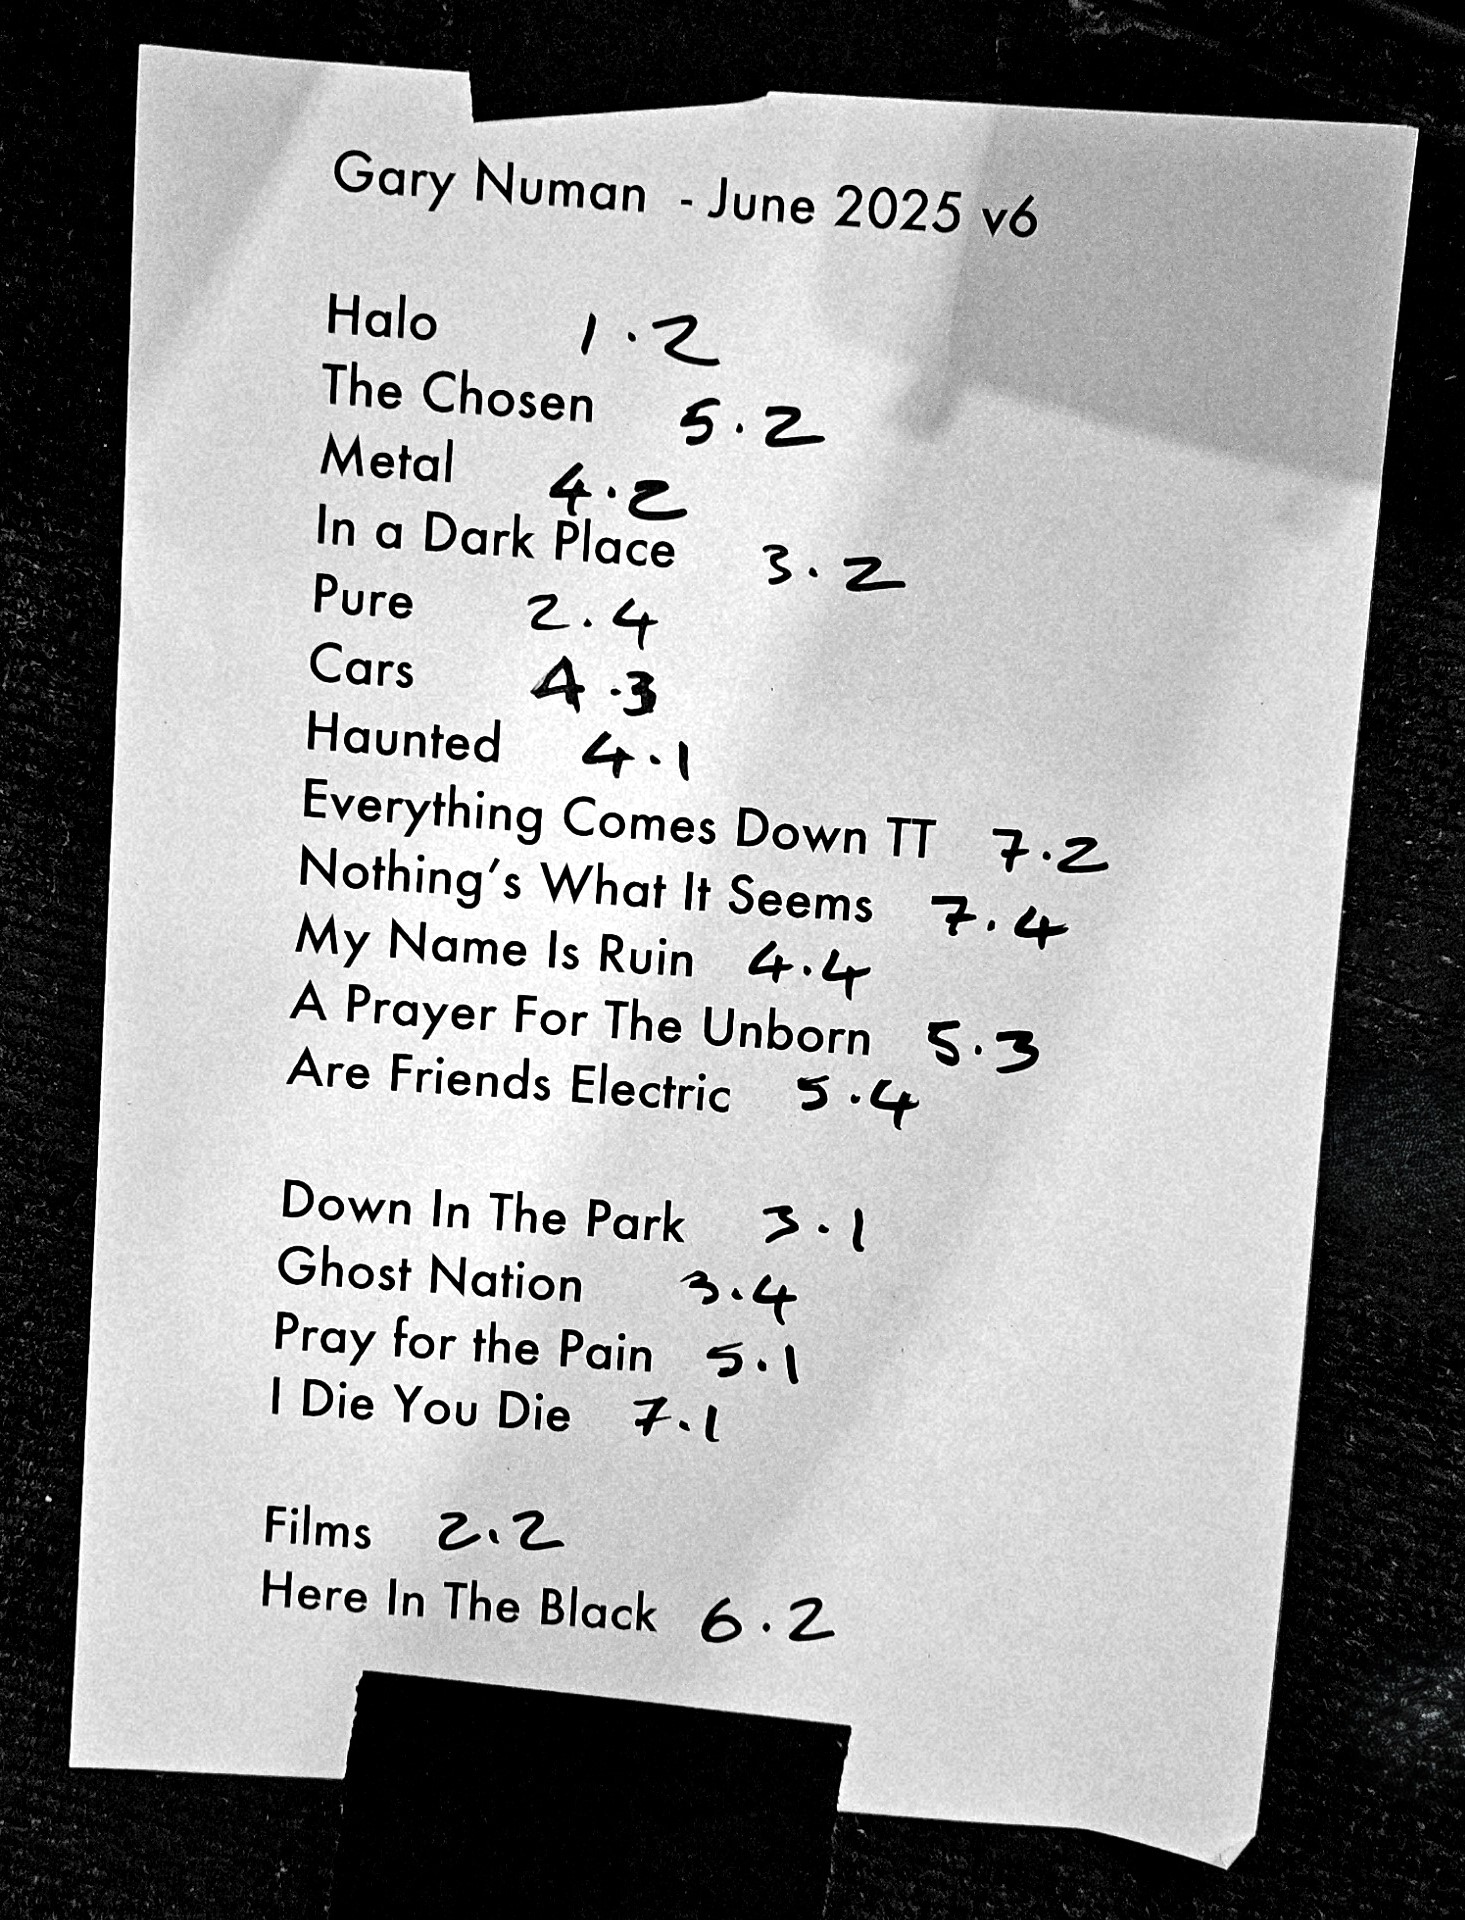 Gary Numan - June 2025 v6
Halo 1.2
The Chosen 5.2
Metal 4.2
In a Dark Place 3.2
Pure 2.4
Cars 4.3
Haunted 4.1
Everything Comes Down TT 7.2
Nothing's What It Seems 7.4
My Name Is Ruin 4.4
A Prayer For The Unborn 5.3
Are Friends Electric 5.4
Down In The Park 3.1
Ghost Nation 3.4
Pray for the Pain 5.1
I Die You Die 7.1
Films 2.2
Here In The Black 6.2